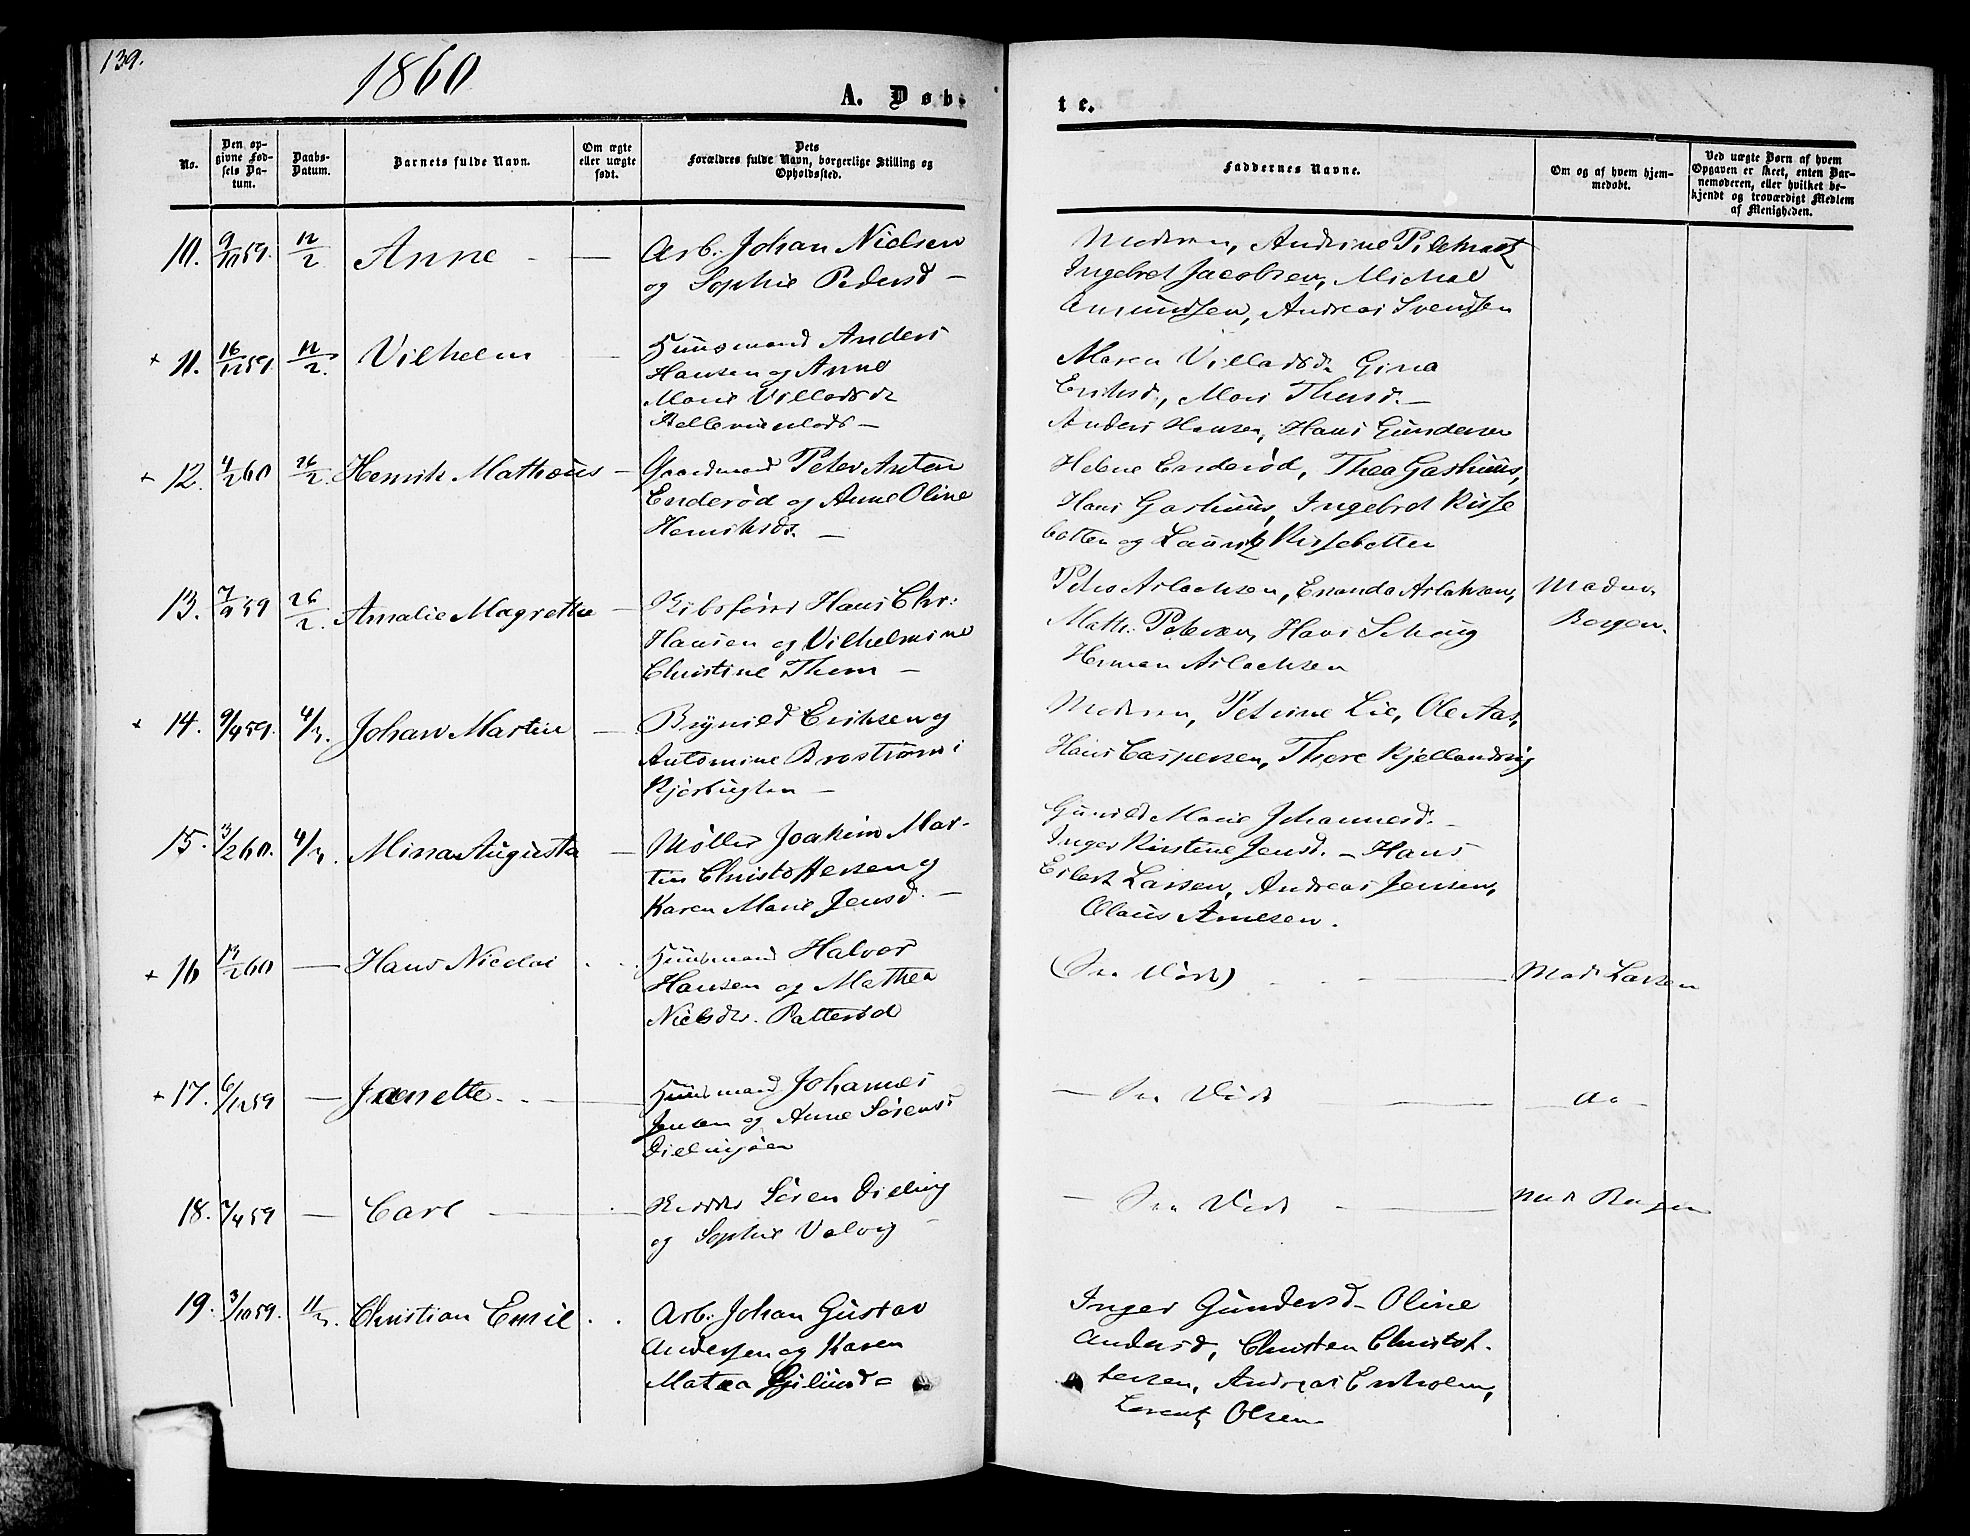 139.
1860
A. Døb-
te.
No.
Den opgivne Fødsels Datum.
Daabs-Datum.
Barnets fulde Navn.
Om ægte eller uægte født.
Dets Forældres fulde Navn, borgerlige Stilling og Opholdssted.
Faddernes Navne.
Om og af hvem hjemmedøbt.
Ved uægte Børn af hvem Opgaven er skeet, enten Barnemoderen, eller hvilket bekjendt og troværdigt Medlem af Menigheden.
10. 9/10 59. 12/2 Anne - —
Arb: Johan Nielsen
og Sophie Pedersd —
Moderen, Andrine
Ingebret Jacobsen, Michal
Amundsen, Andreas Svendsen
+ 11. 16/12 59 12/2. Vilhelm —
Huusmand Anders
Hansen og Anne
Marie Villadsdr
—
Maren Villadsdr Gina
Eriksd., Mari Thersd. —
Anders Hansen, Hans Gundersen
+ 12. 4/2 60 26/2 Henrik Mathæus —
Gaardmand Peter Anton
Enderød og Anne Oline
Henriksdr. —
Helene Enderød, Thea Gashuus,
Hans Gashuus, Ingebret Risse
botten og Lauritz Rissebotten
13. 7/9 59 26/2. Amalie Magrethe —
Skibsfører Hans Chr:
Hansen og Vilhelmine
Christine Thom —
Peter Aslachsen, Enanda Aslaksen,
Math. Petersen, Hans Schaug
Herman Aslachsen
Madm.
Borgen.
+ 14. 9/4 59. 4/3. Johan Martin —
Brynild Eriksen og
Antomine Brostrøm i
Kjørbugten —
Moderen, Petrine Lie, Ole Aas,
Hans Caspersen, Thore Kjellandsvig
15. 3/2 60. 4/3. Mina Augusta —
Møller Joakim Mar-
tin Christoffersen og
Karen Marie Jensd. —
Gunild Marie Johannesd. —
Inger Kirstine Jensd. — Hans
Eilert Larsen, Andreas Jensen,
Olaus Arnesen.
+ 16 13/2 60 — Hans Nicolai
Huusmand Halvor
Hansen og Mathea
Nielsdr. Patterød
(Saa Død) —
Mad. Larsen
+ 17. 6/12 59 — Janette. —
Huusmand Johannes
Jensen og Anne Sørensd
— Saa Død —
do
18. 7/4 59 — Carl —
Søren Dieling
og Sophie Valvig —
— Saa Død —
Mad. Borgen
19. 3/10 59. 11/3. Christian Emil
Arb: Johan Gustav
Andersen og Karen
Matea
Inger Gundersd — Oline
Andersd, Christen Christof-
fersen, Andreas Enholm,
Lorentz Olsen